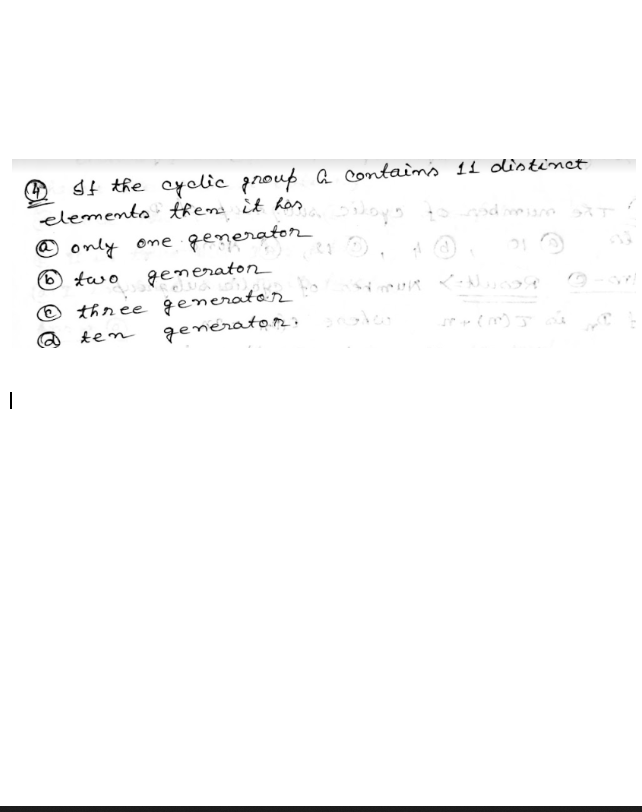 ④ If the cyclic group G contains 11 distinct
elements then it has
ⓐ only one generator
ⓑ two generator
ⓒ three generator
ⓓ ten generator.